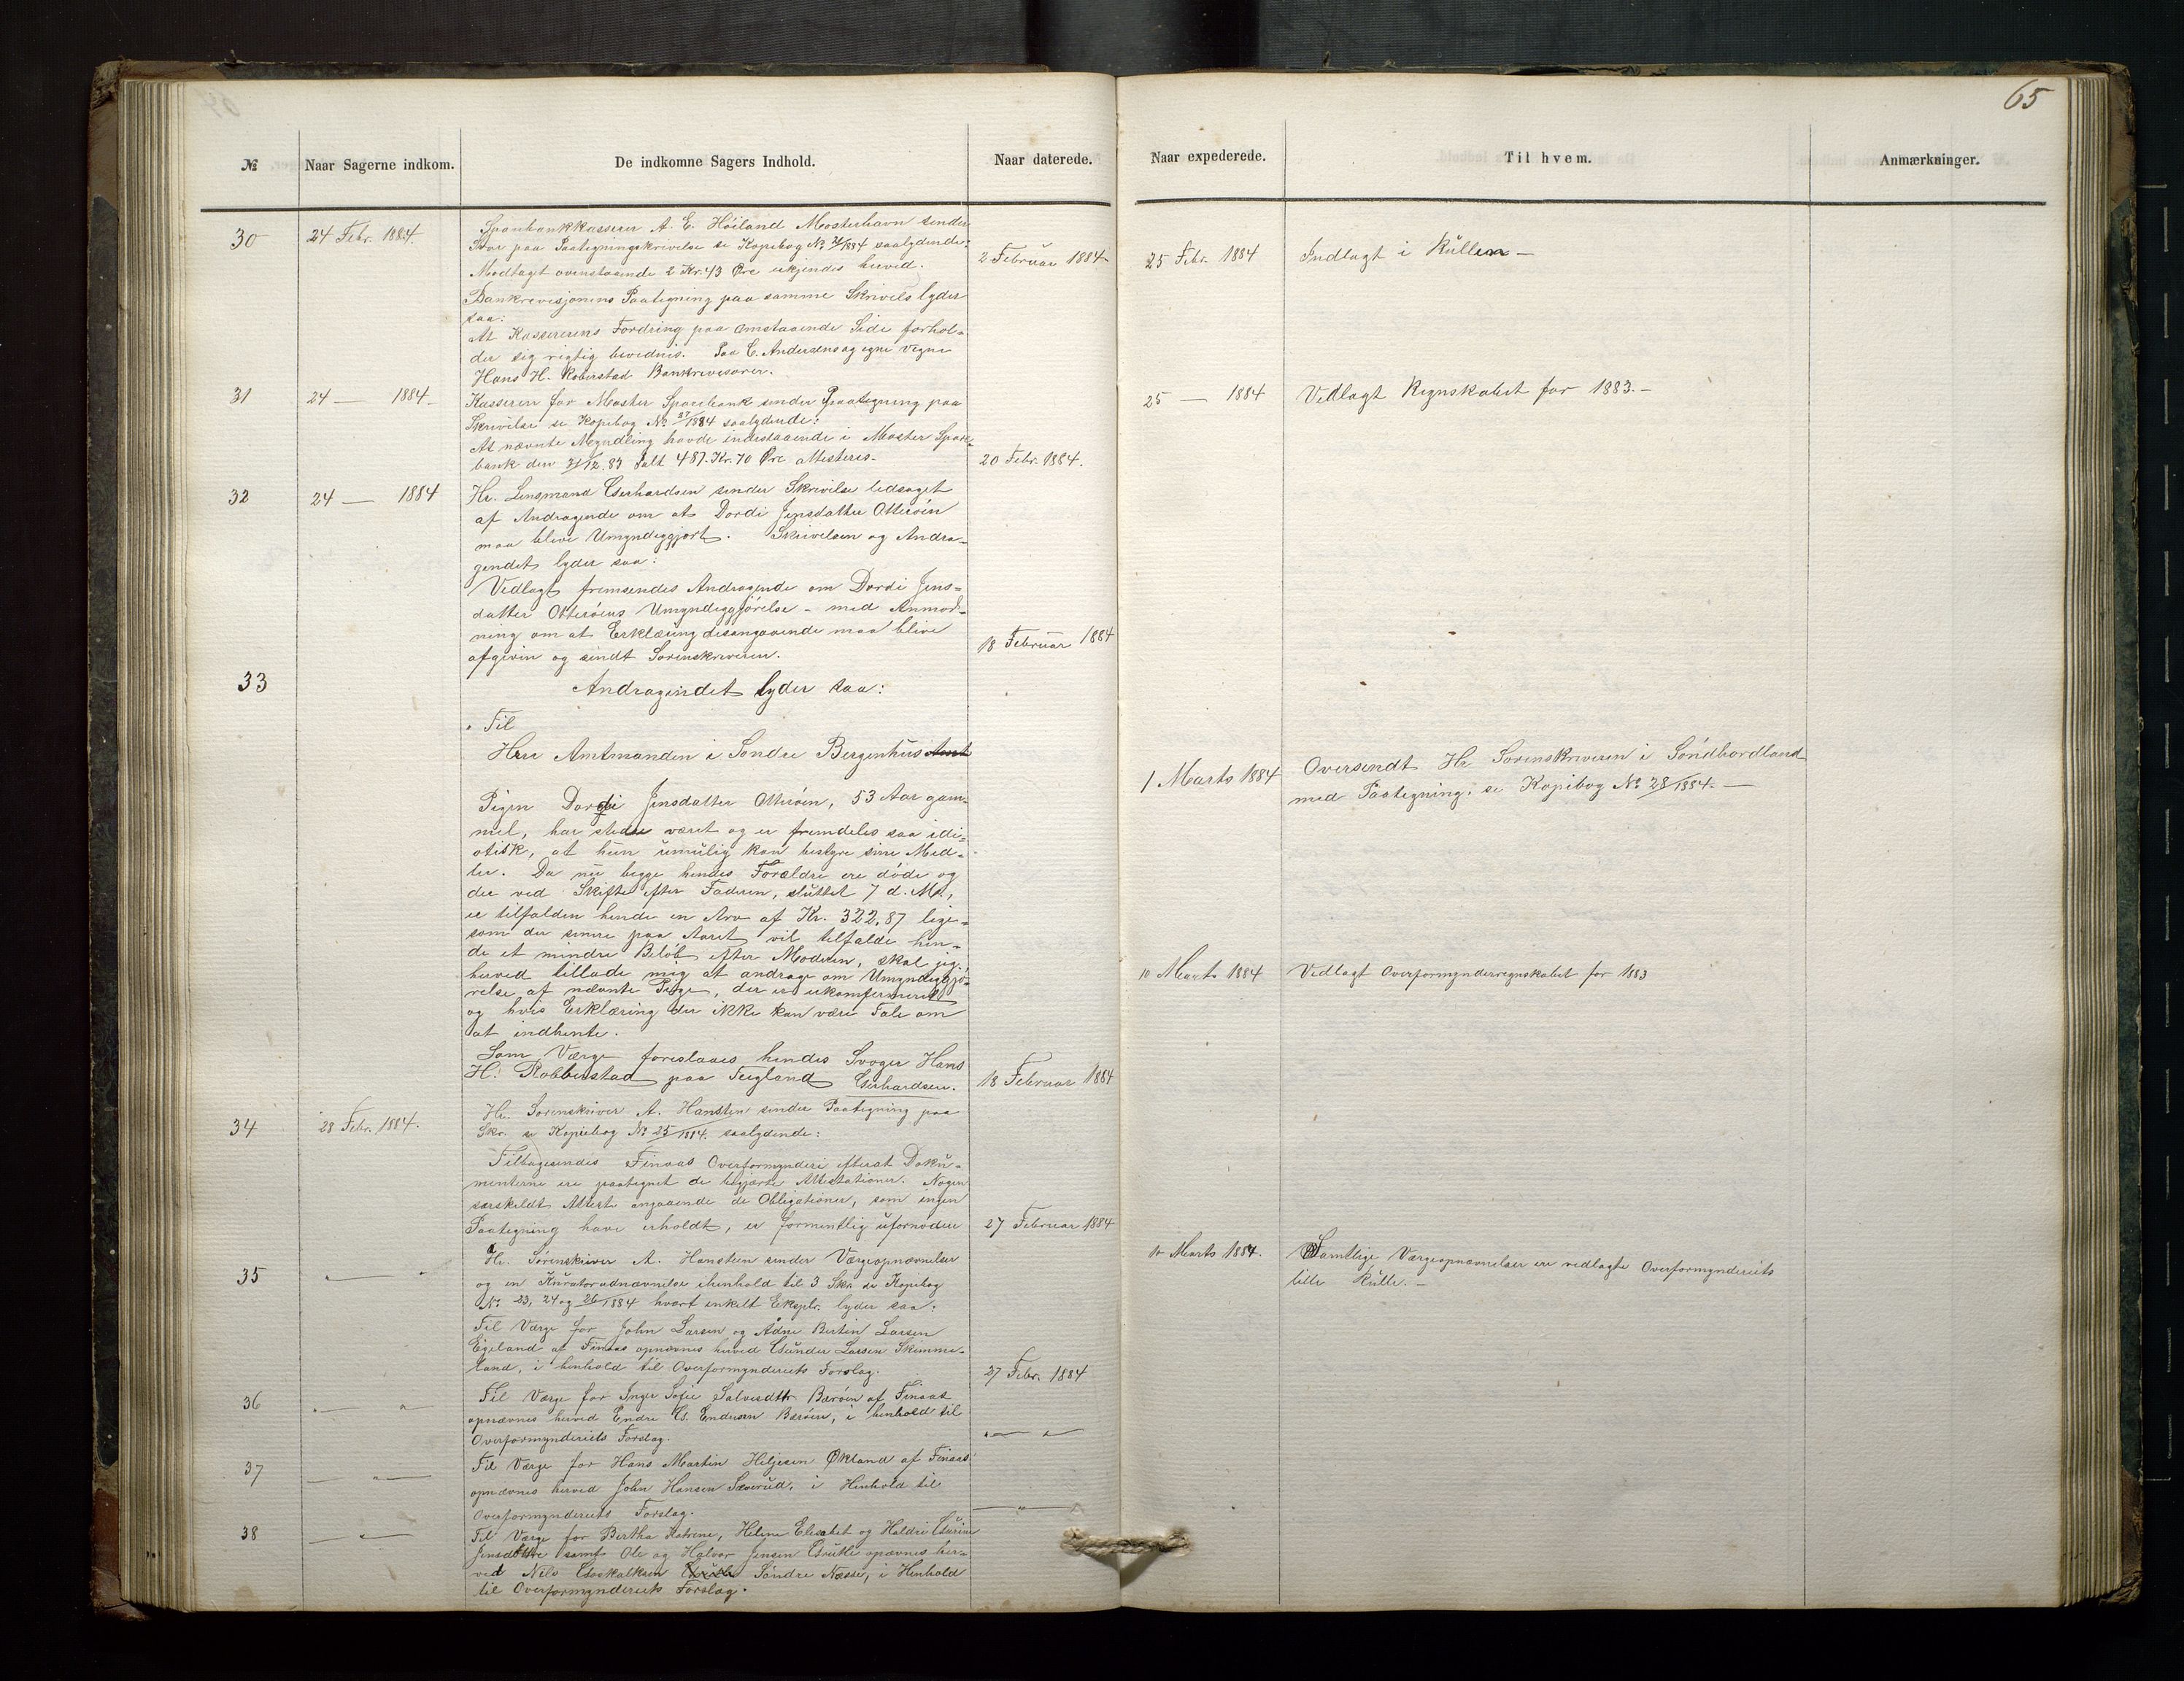 65
№ Naar Sagerne indkom. De indkomne Sagers Indhold. Naar daterede. Naar expederede. Til hvem. Anmærkninger.
30 24 Febr. 1884
Sparebankkasserer A. E. Höiland Mosterhavn sender
Svar paa Paategningskrivelse se Kopibog № /1884 saalydende:
Modtaget ovenstaaende 2 Kr. 43 Øre erkjendes herved.
2 Februar 1884
25 Febr. 1884 Indlagt i Rullen –
Bankrevisjonens Paategning paa samme Skrivels lyder
saa:
At Kassererens Fordring paa omstaaende Side forhol-
der sig rigtig bevidnes. Paa C. Andersens og egne Vegne
Hans H. Roberstad Bankrevisorer.
31 24 — 1884
Kasseren for Moster Sparebank sender Paategning paa
Skrivelse se Kopibog № 37/1884 saalydende:
At nævnte Myndling havde indestaaende i Moster Spare-
bank den 31/12.83 Talt 487. Kr. 70 Øre attesteres.
20 Febr. 1884.
25 — 1884 Vedlagt Regnskabet for 1883. –
32 24 — 1884
Hr. Lensmand Gerhardsen sender Skrivelse ledsaget
af Andragende om at Dordi Jensdatter Otteröen
maa blive Umyndiggjort. Skrivelsen og Andra-
gendet lyder saa:
Vedlagt fremsendes Andragende om Dordi Jens-
datter Otteröens Umyndiggjörelse – med Anmod-
ning om at Erklæring desangaaende maa blive
afgiven og sendt Sorenskriveren.
18 Februar 1884
33
Andragendet lyder saa:
Til
Herr Amtmanden i Söndre Bergenhus Amt
Pigen Dordi Jensdatter Otteröen, 53 Aar gam-
mel, har stedse været og er fremdeles saa idi-
otisk, at hun umulig kan bestyre sine Mid-
ler. Da nu begge hendes Forældre ere döde og
der ved Skifte efter Faderen, sluttet 7 d. M.,
er tilfalden hende en Arv af Kr. 322,87 lige-
som der senere paa Aaret vil tilfalde hen-
de et mindre Belöb efter Moderen, skal jeg
herved tillade mig at andrage om Umyndiggjö-
relse af nævnte Pige, der er ukonfermeret
og hvis Erklæring der ikke kan være Tale om
at indhente.
Som Værge foreslaaes hendes Svoger Hans
H. Robberstad paa Teigland Gerhardsen.
18 Februar 1884
1 Marts 1884 Oversendt Hr Sorenskriveren i Söndhordland
med Paategning: se Kopibog № 28/1884. –
10 Marts 1884 Vedlagt Overformynderregnskabet for 1883
34 28 Febr. 1884.
Hr. Sorenskriver A. Hansten sender Paategning paa
Skr. se Kopiebog № 25/1884. saalydende:
Tilbagesendes Finaas Overformynderi efterat Doku-
menterne ere paategnet de begjærte Attestationer. Nogen
særskeldt Attest angaaende de Obligationer, som ingen
Paategning have erholdt, er formentlig ufornöden
27 Februar 1884
35 — " —
Hr. Sörenskriver A. Hansteen sender Værgeopnævnelser
og en Kuratorudnævnelse ihenhold til 3 Skr. se Kopibog
№ 23, 24 og 26/1884 hvort enkelt Eksplr. lyder saa:
Til Værge for John Larsen og Adne Bertin Larsen
Eqeland af Finaas opnævnes herved Gunder Larsen Skimme-
land, i henhold til Overformynderiets Forslag.
27 Febr. 1884
10 Marts 1884. Samtlige Værgeopnævnelser ere vedlagte Overformynderiets
lille Rulle. –
36 — " —
Til Værge for Inger Sofie Salvesdttr Bæröen af Finaas
opnævnes herved Endre G. Endresen Bæröen, i henhold til
Overformynderiets Forslag.
— " —
37 — " —
Til Værge for Hans Martin Heljesen Økland af Finaas
opnævnes herved John Hansen Sæverud, i Henhold til
Overformynderiets Forslag.
— " —
38 — " —
Til Værge for Bertha Katrine, Helene Elisabet og Haldri Gurine
Jensdöttre samt Ole og Halvor Jensen Grutle opævnes her-
ved Nils Søndre Næsse, i Henhold
til Overformynderiets Forslag.